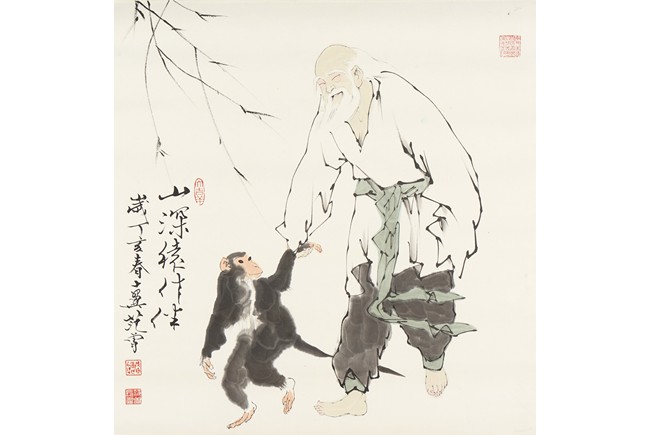 山深猿作伴
歲丁亥春十翼范曾